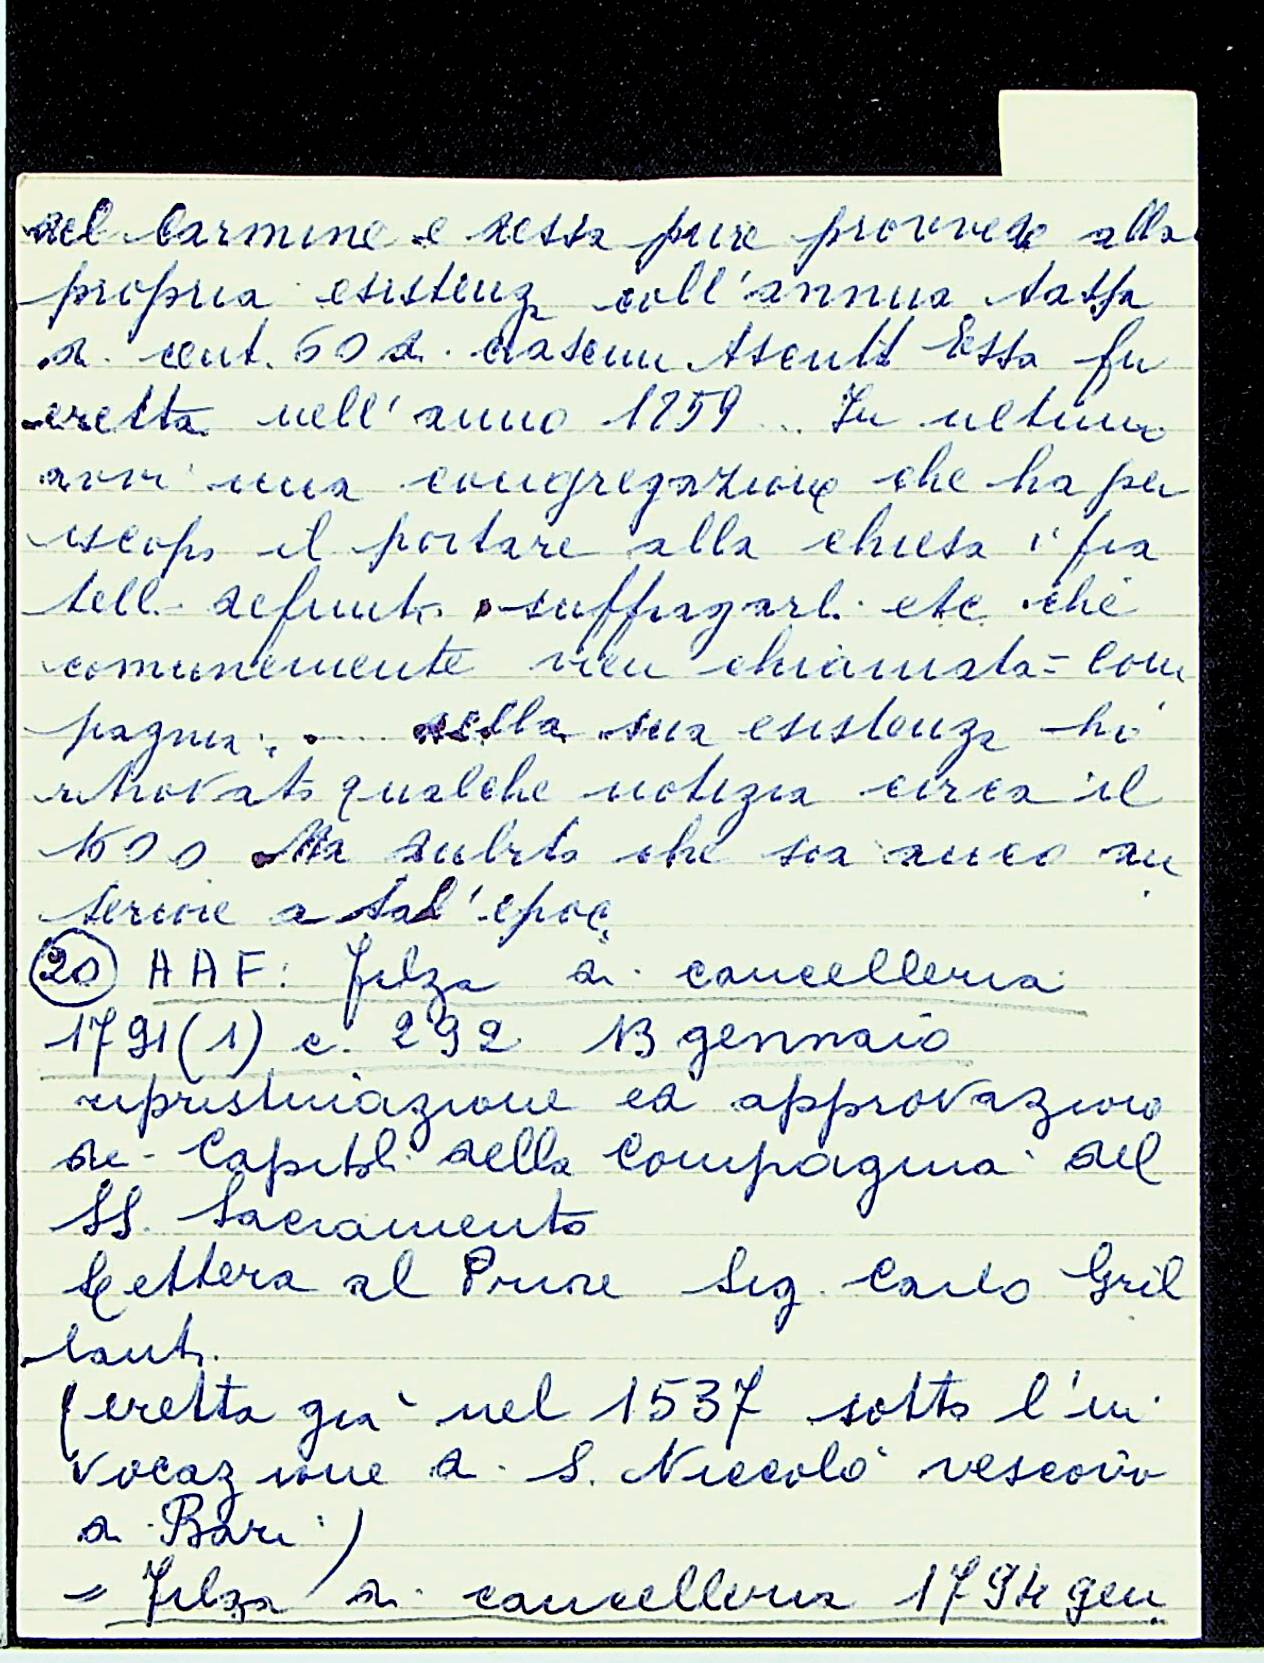 del Carmine e dessa pure provvede alla
propria esistenza coll'annua tassa
di cent. 60 d. ciascun Ascritt Essa fu
eretta nell'anno 1259 .. In ultimo
avvi una congregazione che ha per
iscopo il portare alla chiesa i fra
telli defunti, suffragarli etc che
comunemente vien chiamata = Com
pagnia. . .... della sua esistenza hò
ritrovato qualche notizia circa il
1600 Ma dubito che sia anco an
teriore a tal'epoca
(20) AAF: Filza di cancelleria
1791(1) c. 292 13 gennaio
ripristinazione ed approvazione
dei Capitoli della Compagnia del
SS. Sacramento
Lettera al Priore Sig. Carlo Gril
lanti.
(eretta già nel 1537 sotto l'in
vocazione di S. Niccolò vescovo
di Bari)
= Filza di cancelleria 1794 gen